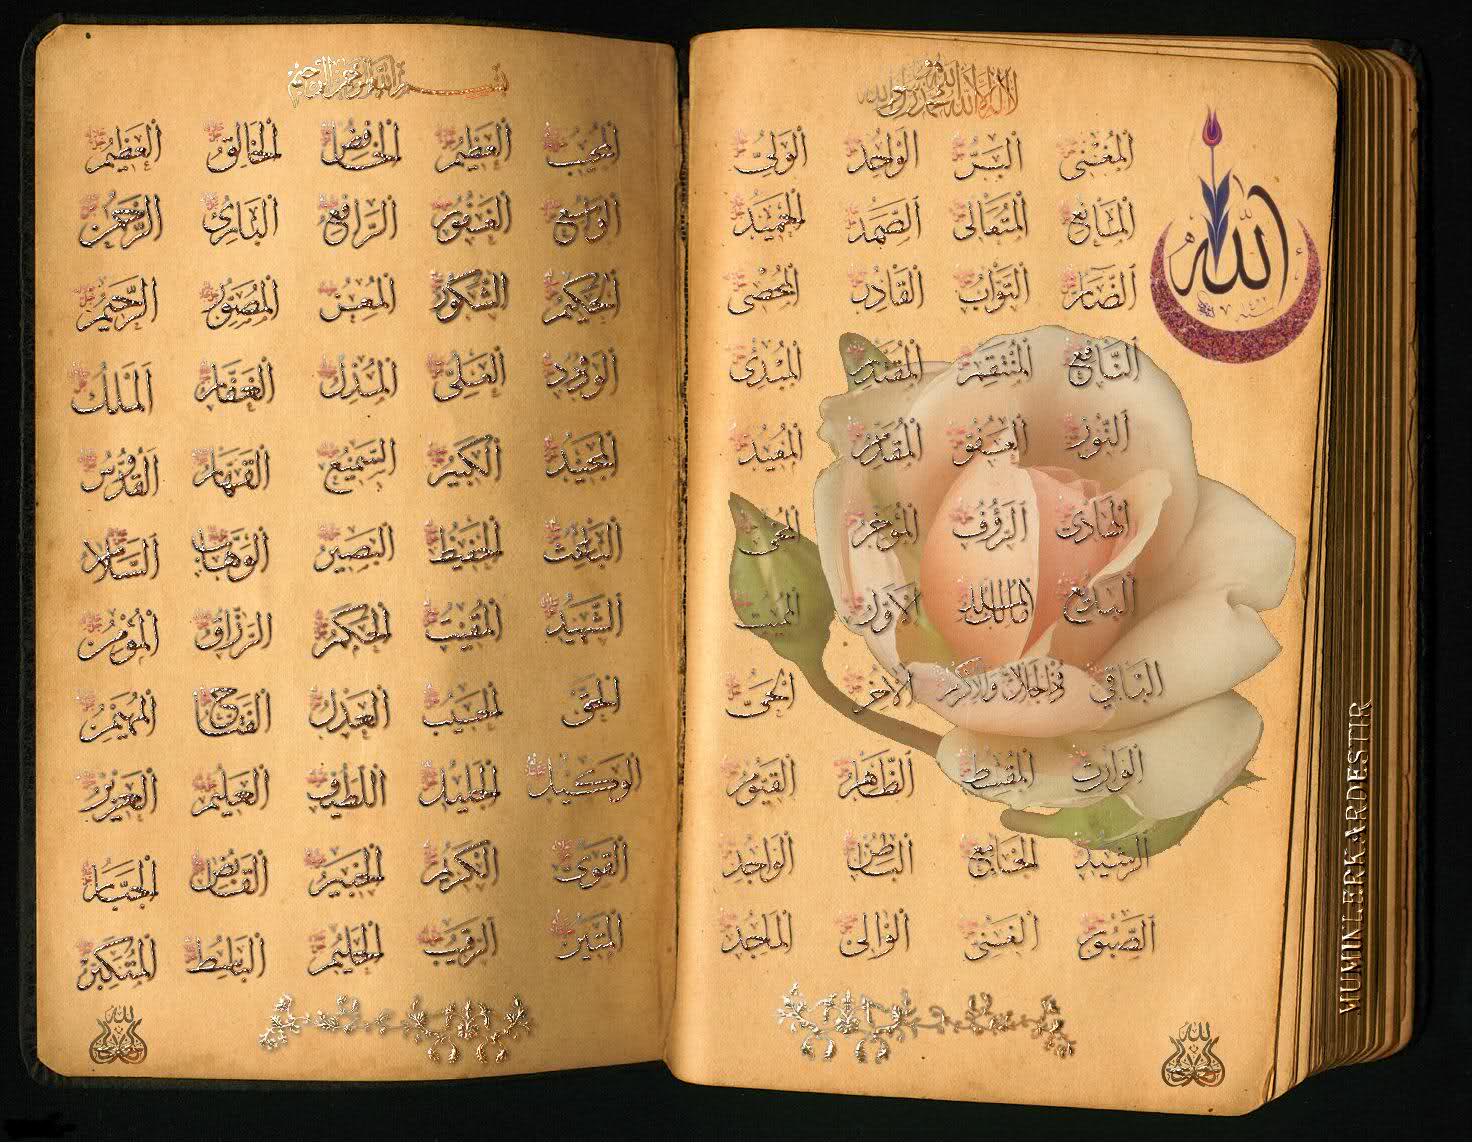 بسم الله الرحمن الرحيم
المجيب العظيم الخافض الخالق العظيم
الواسع الغفور الرافع البارئ الرحمن
الحكيم الشكور المعز المصور الرحيم
الودود العلي المذل الغفار الملك
المجيد الكبير السميع القهار القدوس
الباعث الحفيظ البصير الوهاب السلام
الشهيد المقيت الحكم الرزاق المؤمن
الحق الحسيب العدل الفتاح المهيمن
الوكيل الجليل اللطيف العليم العزيز
القوي الكريم الخبير القابض الجبار
المتين الرقيب الحليم الباسط المتكبر
لا اله الا الله محمد رسول الله
المغني البر الواحد الولي
المانع المتعالي الصمد الحميد
الضار التواب القادر المحصي
النافع المنتقم المقتدر المبدئ
النور العفو المقدم المعيد
الهادي الرؤف المؤخر المحيي
البديع مالك الملك الأول المميت
الباقي ذو الجلال والإكرام الآخر الحي
الوارث المقسط الظاهر القيوم
الرشيد الجامع الباطن الواجد
الصبور الغني الوالي الماجد
الله
MUMINLERKARDESTIR